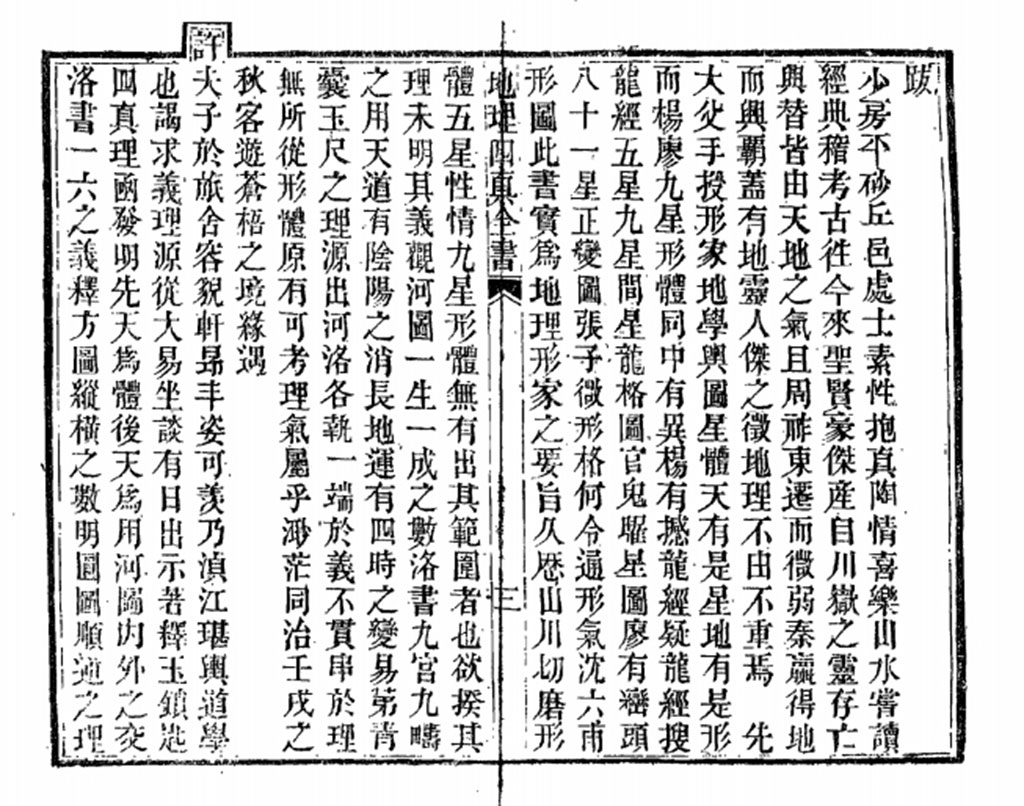 跋
少房不砂丘邑處士素性抱真陶情喜樂山水嘗讀
經典稽考古徃今來聖賢豪傑産自川嶽之靈存亡
興替皆由天地之氣且周祚東遷而微弱秦嬴得地
而興覇蓋有地靈人傑之徵地理不由不重焉 先
大父手授形家地學輿圖星體天有是星地有是形
而楊廖九星形體同中有異楊有撼龍經疑龍經搜
龍經五星九星間星龍格圖官鬼曜星圖廖有巒頭
八十一星正變圖張子微形格何令通形氣沈六甫
形圖此書實爲地理形家之要旨久歴山川切磨形
地理四真全書 三
體五星性情九星形體無有出其範圍者也欲揆其
理未明其義觀河圖一生一成之數洛書九宮九疇
之用天道有陰陽之消長地運有四時之變易第青
囊玉尺之理源出河洛各執一端於義不貫串於理
無所從形體原有可考理氣屬乎渺茫同治壬戌之
秋客遊蒼梧之境緣遇
許夫子於旅舍容貌軒昻丰姿可羡乃滇江堪輿道學
也謁求義理源從大易坐談有日出示著釋玉鎖匙
四真理函發明先天爲體後天爲用河圖内外之交
洛書一六之義釋方圖縱横之數明圓圖順逆之理